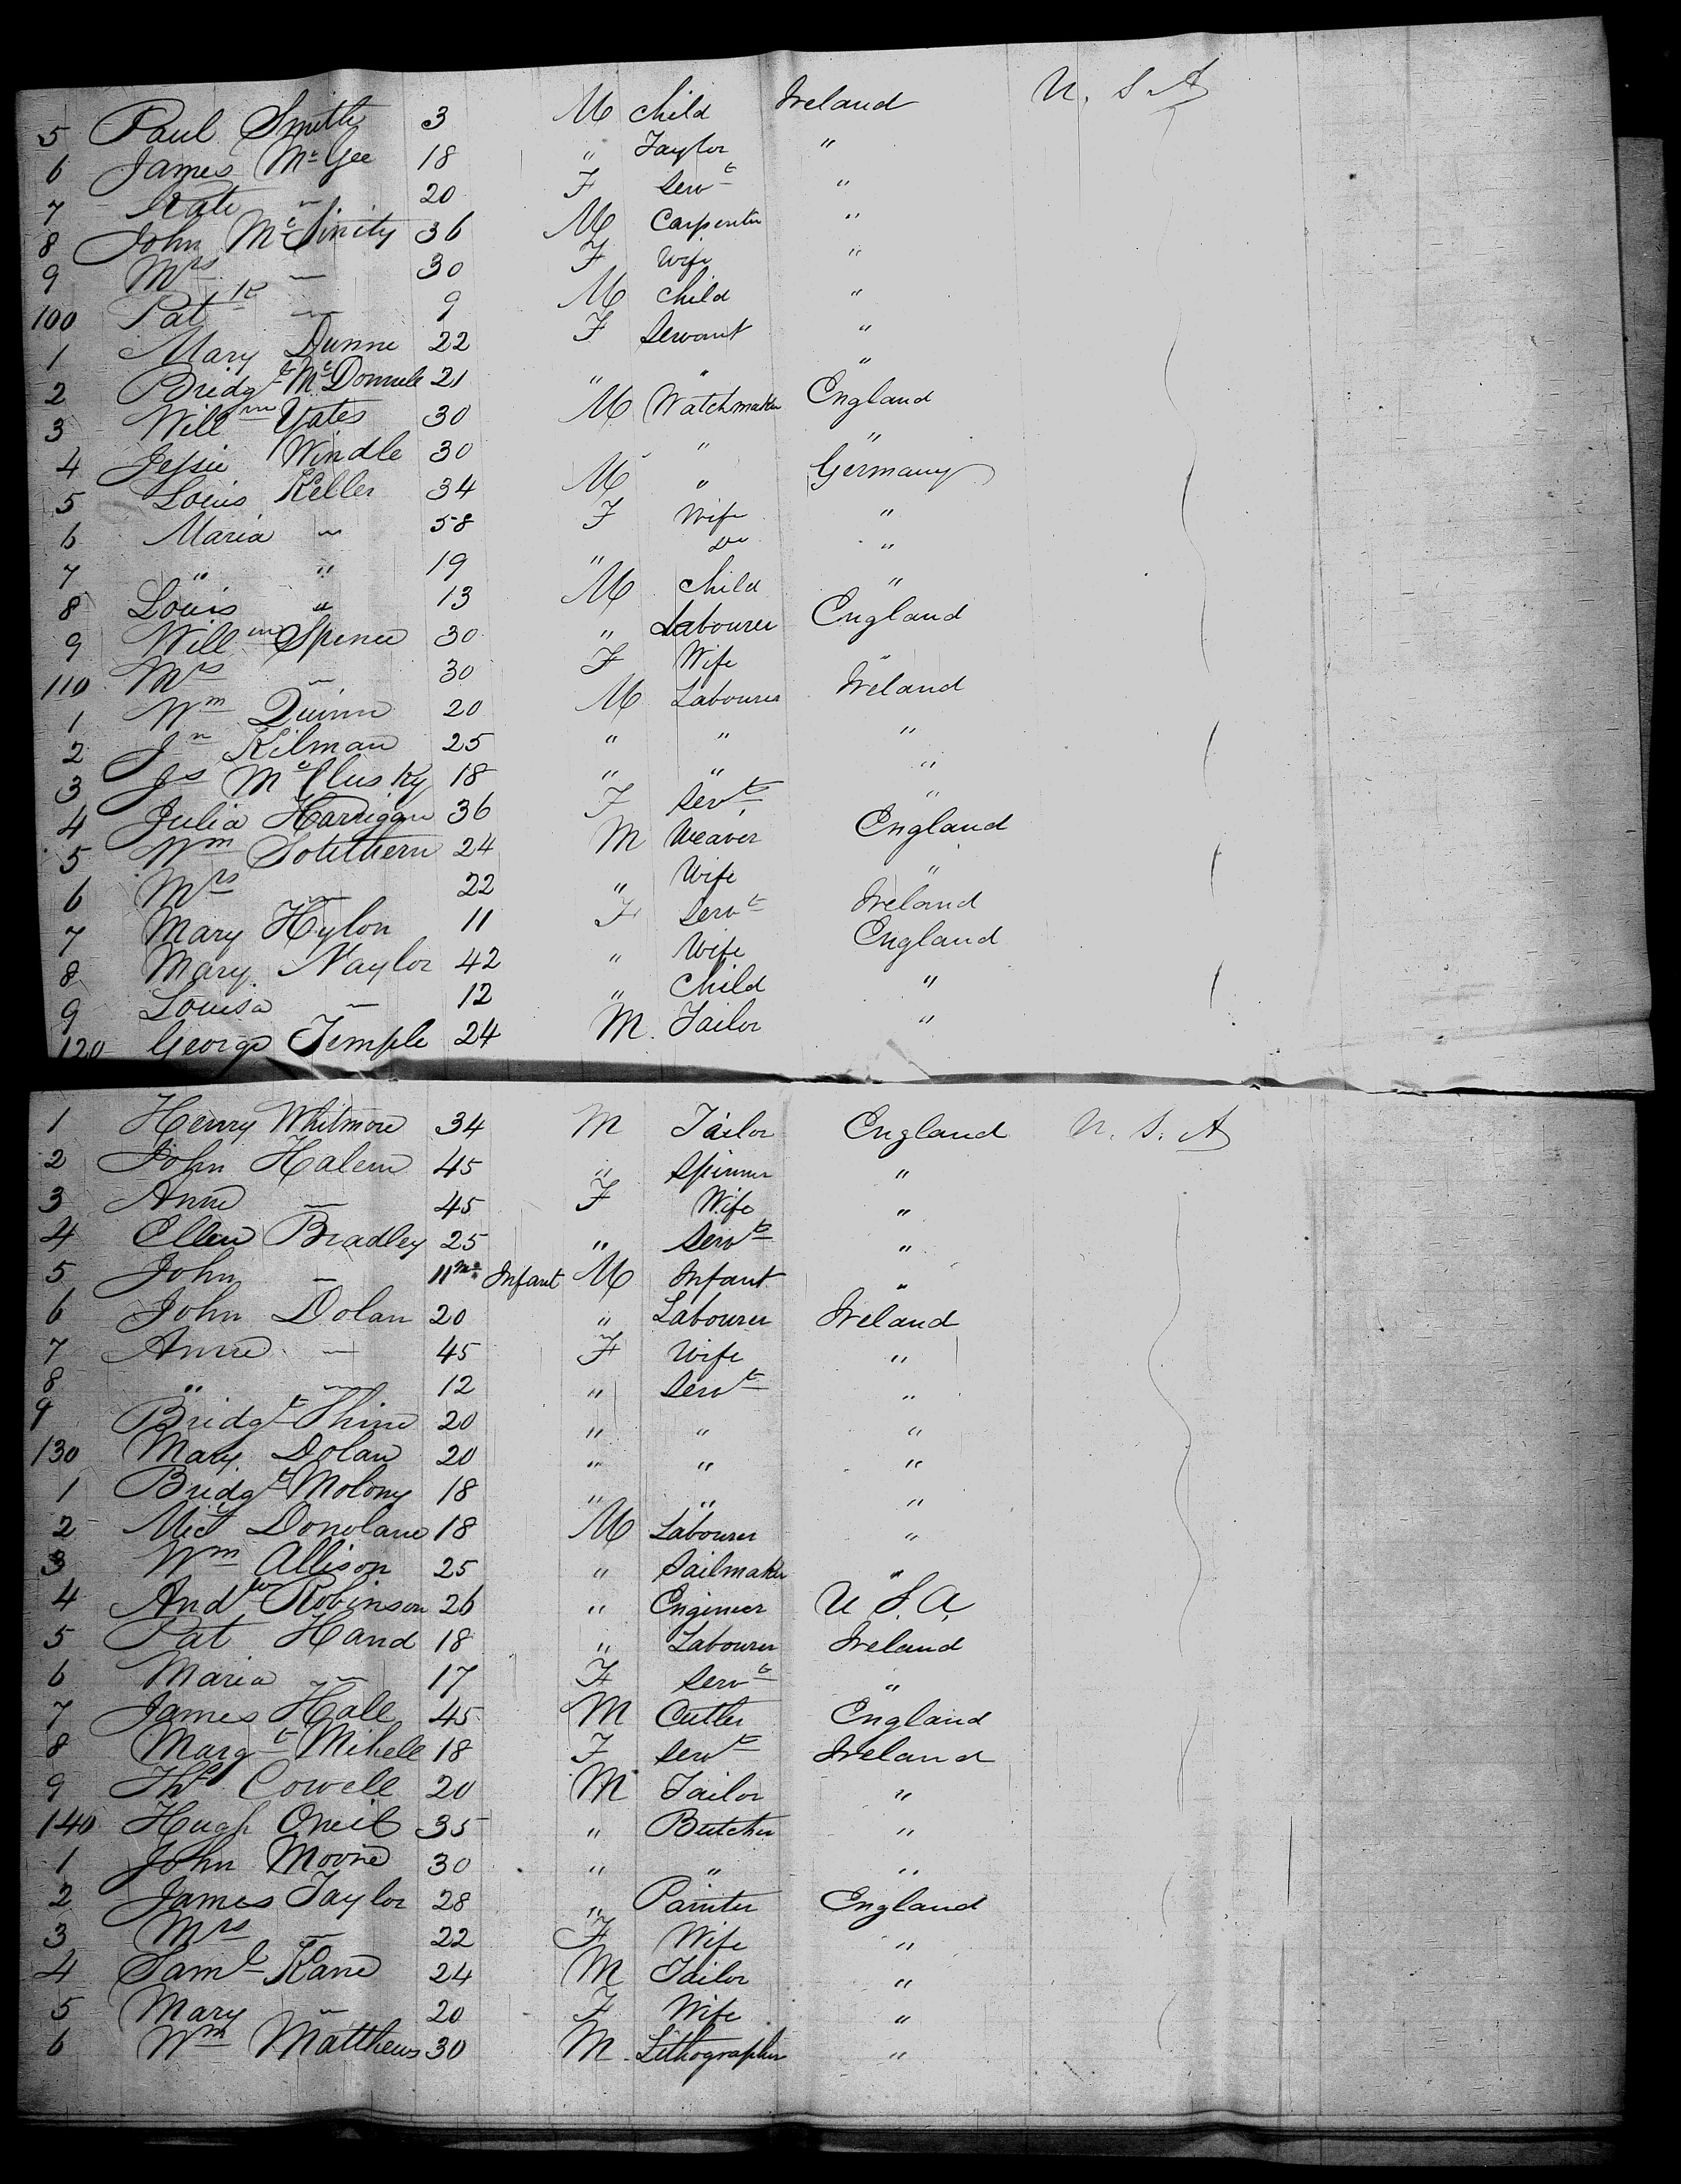 5 Paul Smith 3 M Child Ireland U. S. A
6 James McGee 18 " Taylor "
7 Kate — 20 F Servt "
8 John McGinity 36 M Carpenter "
9 Mrs — 30 F Wife "
100 Patk — 9 M Child "
1 Mary Dunne 22 F Servant "
2 Bridgt McDonnell 21 " " "
3 Willm Yates 30 M Watchmaker England
4 Jessie Windle 30 " "
5 Louis Keller 34 M " Germany
6 Maria — 58 F Wife "
7 " " 19 " Do "
8 Louis " 13 M Child "
9 Willm Spence 30 " Labourer England
110 Mrs — 30 F Wife "
1 Wm Quinn 20 M Labourer Ireland
2 Jn Kilman 25 " " "
3 Js McClusky 18 " " "
4 Julia Harrigan 36 F Servt "
5 Wm Southern 24 M Weaver England
6 Mrs — 22 " Wife "
7 Mary Hylon 11 F Servt Ireland
8 Mary Naylor 42 " Wife England
9 Louisa — 12 " Child "
120 George Temple 24 M. Tailor "
1 Henry Whitmore 34 M Tailor England U. S. A
2 John Halem 45 " Spinner "
3 Anne — 45 F Wife "
4 Ellen Bradley 25 " Servt "
5 John — 11 Ms Infant M Infant "
6 John Dolan 20 " Labourer Ireland
7 Anne — 45 F Wife "
8 " — 12 " Servt "
9 Bridgt Shine 20 " " "
130 Mary Dolan 20 " " "
1 Bridgt Molony 18 " " "
2 Micl Donolane 18 M Labourer "
3 Wm Allison 25 " Sailmaker "
4 Andw Robinson 26 " Engineer U. S. A.
5 Pat Hand 18 " Labourer Ireland
6 Maria — 17 F Servt "
7 James Hall 45 M Cutler England
8 Margt Mihell 18 F Servt Ireland
9 Ths Cowell 20 M Tailor "
140 Hugh Oneil 35 " Butcher "
1 John Moore 30 " " "
2 James Taylor 28 " Painter England
3 Mrs — 22 F Wife "
4 Saml Kane 24 M Tailor "
5 Mary — 20 F Wife "
6 Wm Matthews 30 M. Lithographer "